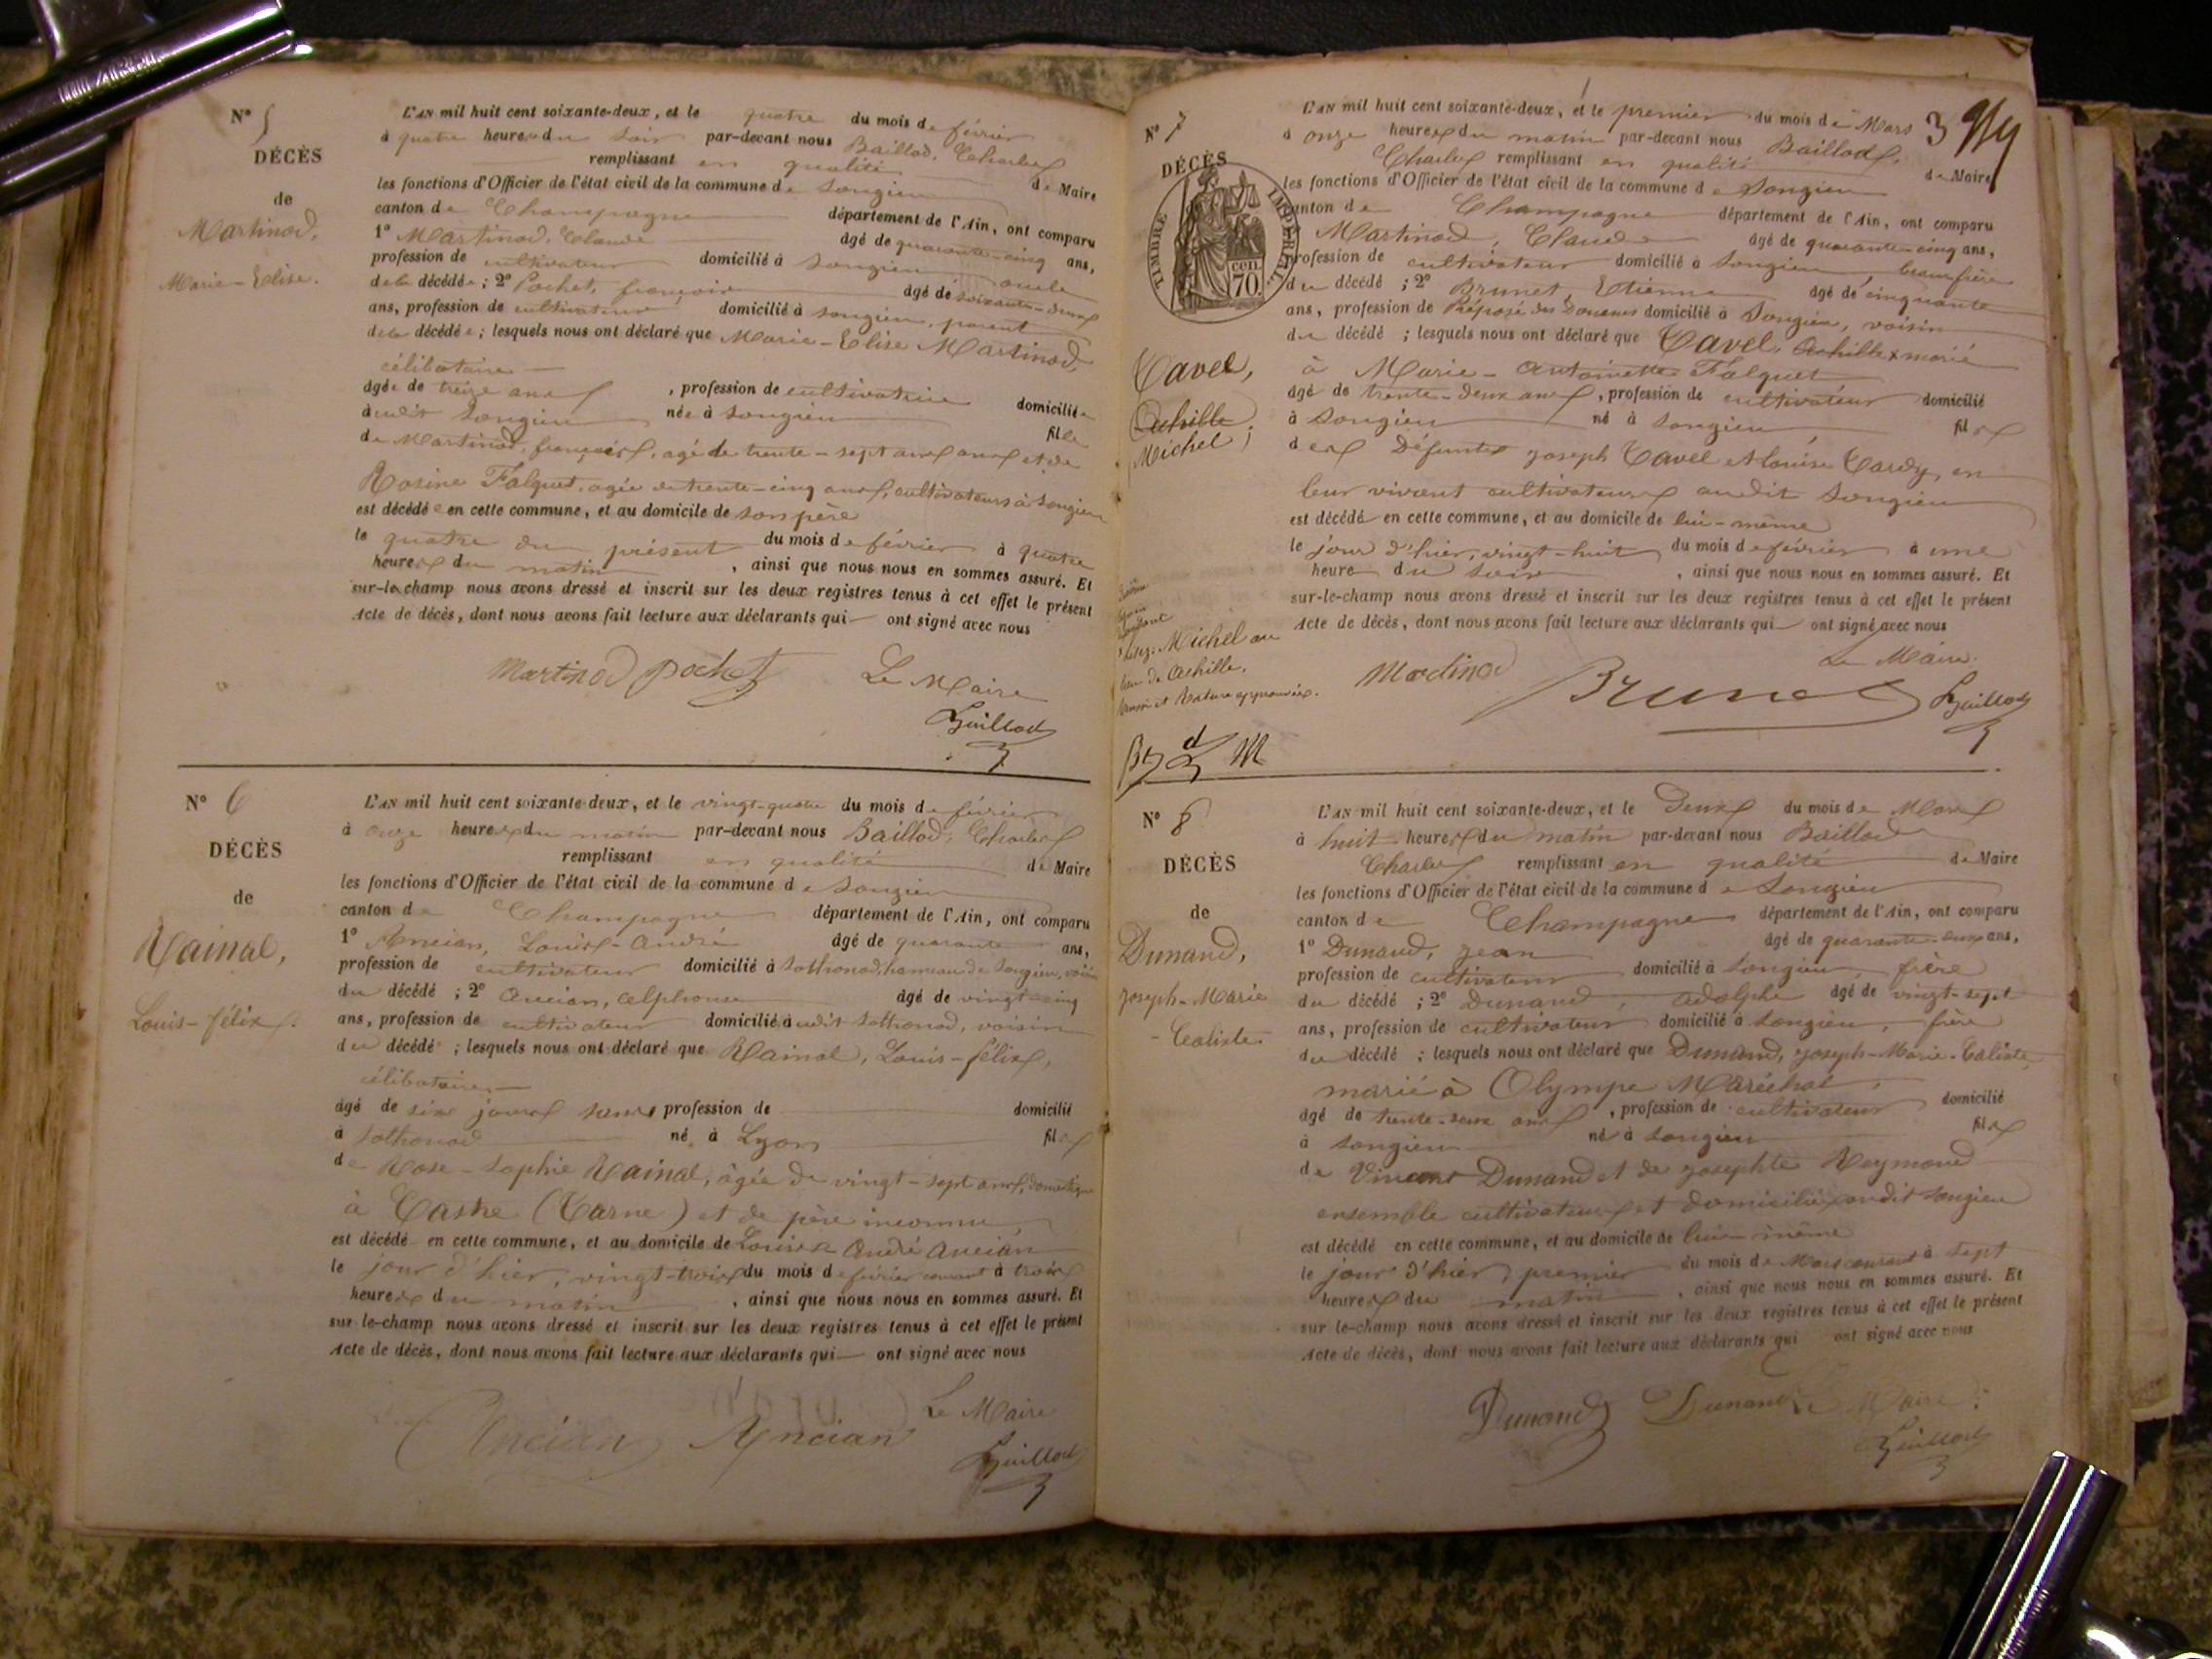 N° 5
DÉCÈS
de
Martinod,
Marie-Elise.
L'AN mil huit cent soixante-deux, et le quatre du mois de février
à quatre heures du soir par-devant nous Baillod, Charles
remplissant en qualité de Maire
les fonctions d'Officier de l'état civil de la commune de Songieu
canton de Champagne département de l'Ain, ont comparu
1° Martinod, Claude âgé de quarante-cinq ans,
profession de cultivateur domicilié à Songieu oncle
de la décédée ; 2° Pochet, françois âgé de soixante-deux
ans, profession de cultivateur domicilié à Songieu, parent
de la décédée ; lesquels nous ont déclaré que Marie-Elise Martinod,
célibataire
âgée de treize ans, profession de cultivatrice domiciliée
audit Songieu née à Songieu fille
de Martinod, françois, agé de trente-sept ans et de
Rosine Falquet, agée de trente-cinq ans, cultivateurs à Songieu
est décédée en cette commune, et au domicile de son père
le quatre du présent du mois de février à quatre
heures du matin, ainsi que nous nous en sommes assuré. Et
sur-le-champ nous avons dressé et inscrit sur les deux registres tenus à cet effet le présent
Acte de décès, dont nous avons fait lecture aux déclarants qui ont signé avec nous
Martinod Pochet Le Maire
Baillod
N° 6
DÉCÈS
de
Rainal,
Louis-félix.
L'AN mil huit cent soixante-deux, et le vingt-quatre du mois de février
à onze heures du matin par-devant nous Baillod, Charles
remplissant en qualité de Maire
les fonctions d'Officier de l'état civil de la commune de Songieu
canton de Champagne département de l'Ain, ont comparu
1° Ancian, Louis-André âgé de quarante ans,
profession de cultivateur domicilié à Sothonod, hameau de Songieu, voisin
du décédé ; 2° Ancian, Alphonse âgé de vingt-cinq
ans, profession de cultivateur domicilié audit Sothonod, voisin
du décédé ; lesquels nous ont déclaré que Rainal, Louis-félix,
célibataire
âgé de six jours sans profession de domicilié
à Sothonod né à Lyon fils
de Rose-Sophie Rainal, âgée de vingt-sept ans, domestique
à Castre (Tarne) et de père inconnu,
est décédé en cette commune, et au domicile de Louis André Ancian
le jour d'hier, vingt-trois du mois de février courant à trois
heures du matin, ainsi que nous nous en sommes assuré. Et
sur-le-champ nous avons dressé et inscrit sur les deux registres tenus à cet effet le présent
Acte de décès, dont nous avons fait lecture aux déclarants qui ont signé avec nous
Ancian Ancian Le Maire
Baillod
3
N° 7
DÉCÈS
TIMBRE IMPÉRIAL
70 cen.
Tavel,
Achille
Michel,
L'AN mil huit cent soixante-deux, et le premier du mois de Mars
à onze heures du matin par-devant nous Baillod,
Charles remplissant en qualité de Maire
les fonctions d'Officier de l'état civil de la commune de Songieu
canton de Champagne département de l'Ain, ont comparu
Martinod, Claude âgé de quarante-cinq ans,
profession de cultivateur domicilié à Songieu, beau frère
du décédé ; 2° Brunet, Etienne âgé de cinquante
ans, profession de Préposé des Douanes domicilié à Songieu, voisin
du décédé ; lesquels nous ont déclaré que Tavel, Achille x marié
à Marie-Antoinette Falquet
âgé de trente-deux ans, profession de cultivateur domicilié
à Songieu né à Songieu fils
des Défuntes Joseph Tavel et Louise Tardy, en
leur vivant cultivateurs audit Songieu
est décédé en cette commune, et au domicile de lui-même
le jour d'hier, vingt-huit du mois de février à une
heure du soir, ainsi que nous nous en sommes assuré. Et
sur-le-champ nous avons dressé et inscrit sur les deux registres tenus à cet effet le présent
Acte de décès, dont nous avons fait lecture aux déclarants qui ont signé avec nous
x Lisez: Michel au
lieu de Achille.
Renvoi et Rature approuvés.
Le Maire.
Martinod Brunet Baillod
N° 8
DÉCÈS
de
Dunand,
Joseph-Marie
-Caliste
L'AN mil huit cent soixante-deux, et le Deux du mois de Mars
à huit heures du matin par-devant nous Baillod
Charles remplissant en qualité de Maire
les fonctions d'Officier de l'état civil de la commune de Songieu
canton de Champagne département de l'Ain, ont comparu
1° Dunand, Jean âgé de quarante-deux ans,
profession de cultivateur domicilié à Songieu, frère
du décédé ; 2° Dunand, Adolphe âgé de vingt-sept
ans, profession de cultivateur domicilié à Songieu, frère
du décédé ; lesquels nous ont déclaré que Dunand, Joseph-Marie-Caliste
marié à Olympe Maréchal,
âgé de trente-deux ans, profession de cultivateur domicilié
à Songieu né à Songieu fils
de Vincent Dunand et de Josephte Reymond
ensemble cultivateurs et domiciliés audit Songieu
est décédé en cette commune, et au domicile de lui-même
le jour d'hier, premier du mois de Mars courant à sept
heures du matin, ainsi que nous nous en sommes assuré. Et
sur-le-champ nous avons dressé et inscrit sur les deux registres tenus à cet effet le présent
Acte de décès, dont nous avons fait lecture aux déclarants qui ont signé avec nous
Dunand Dunand Le Maire
Baillod